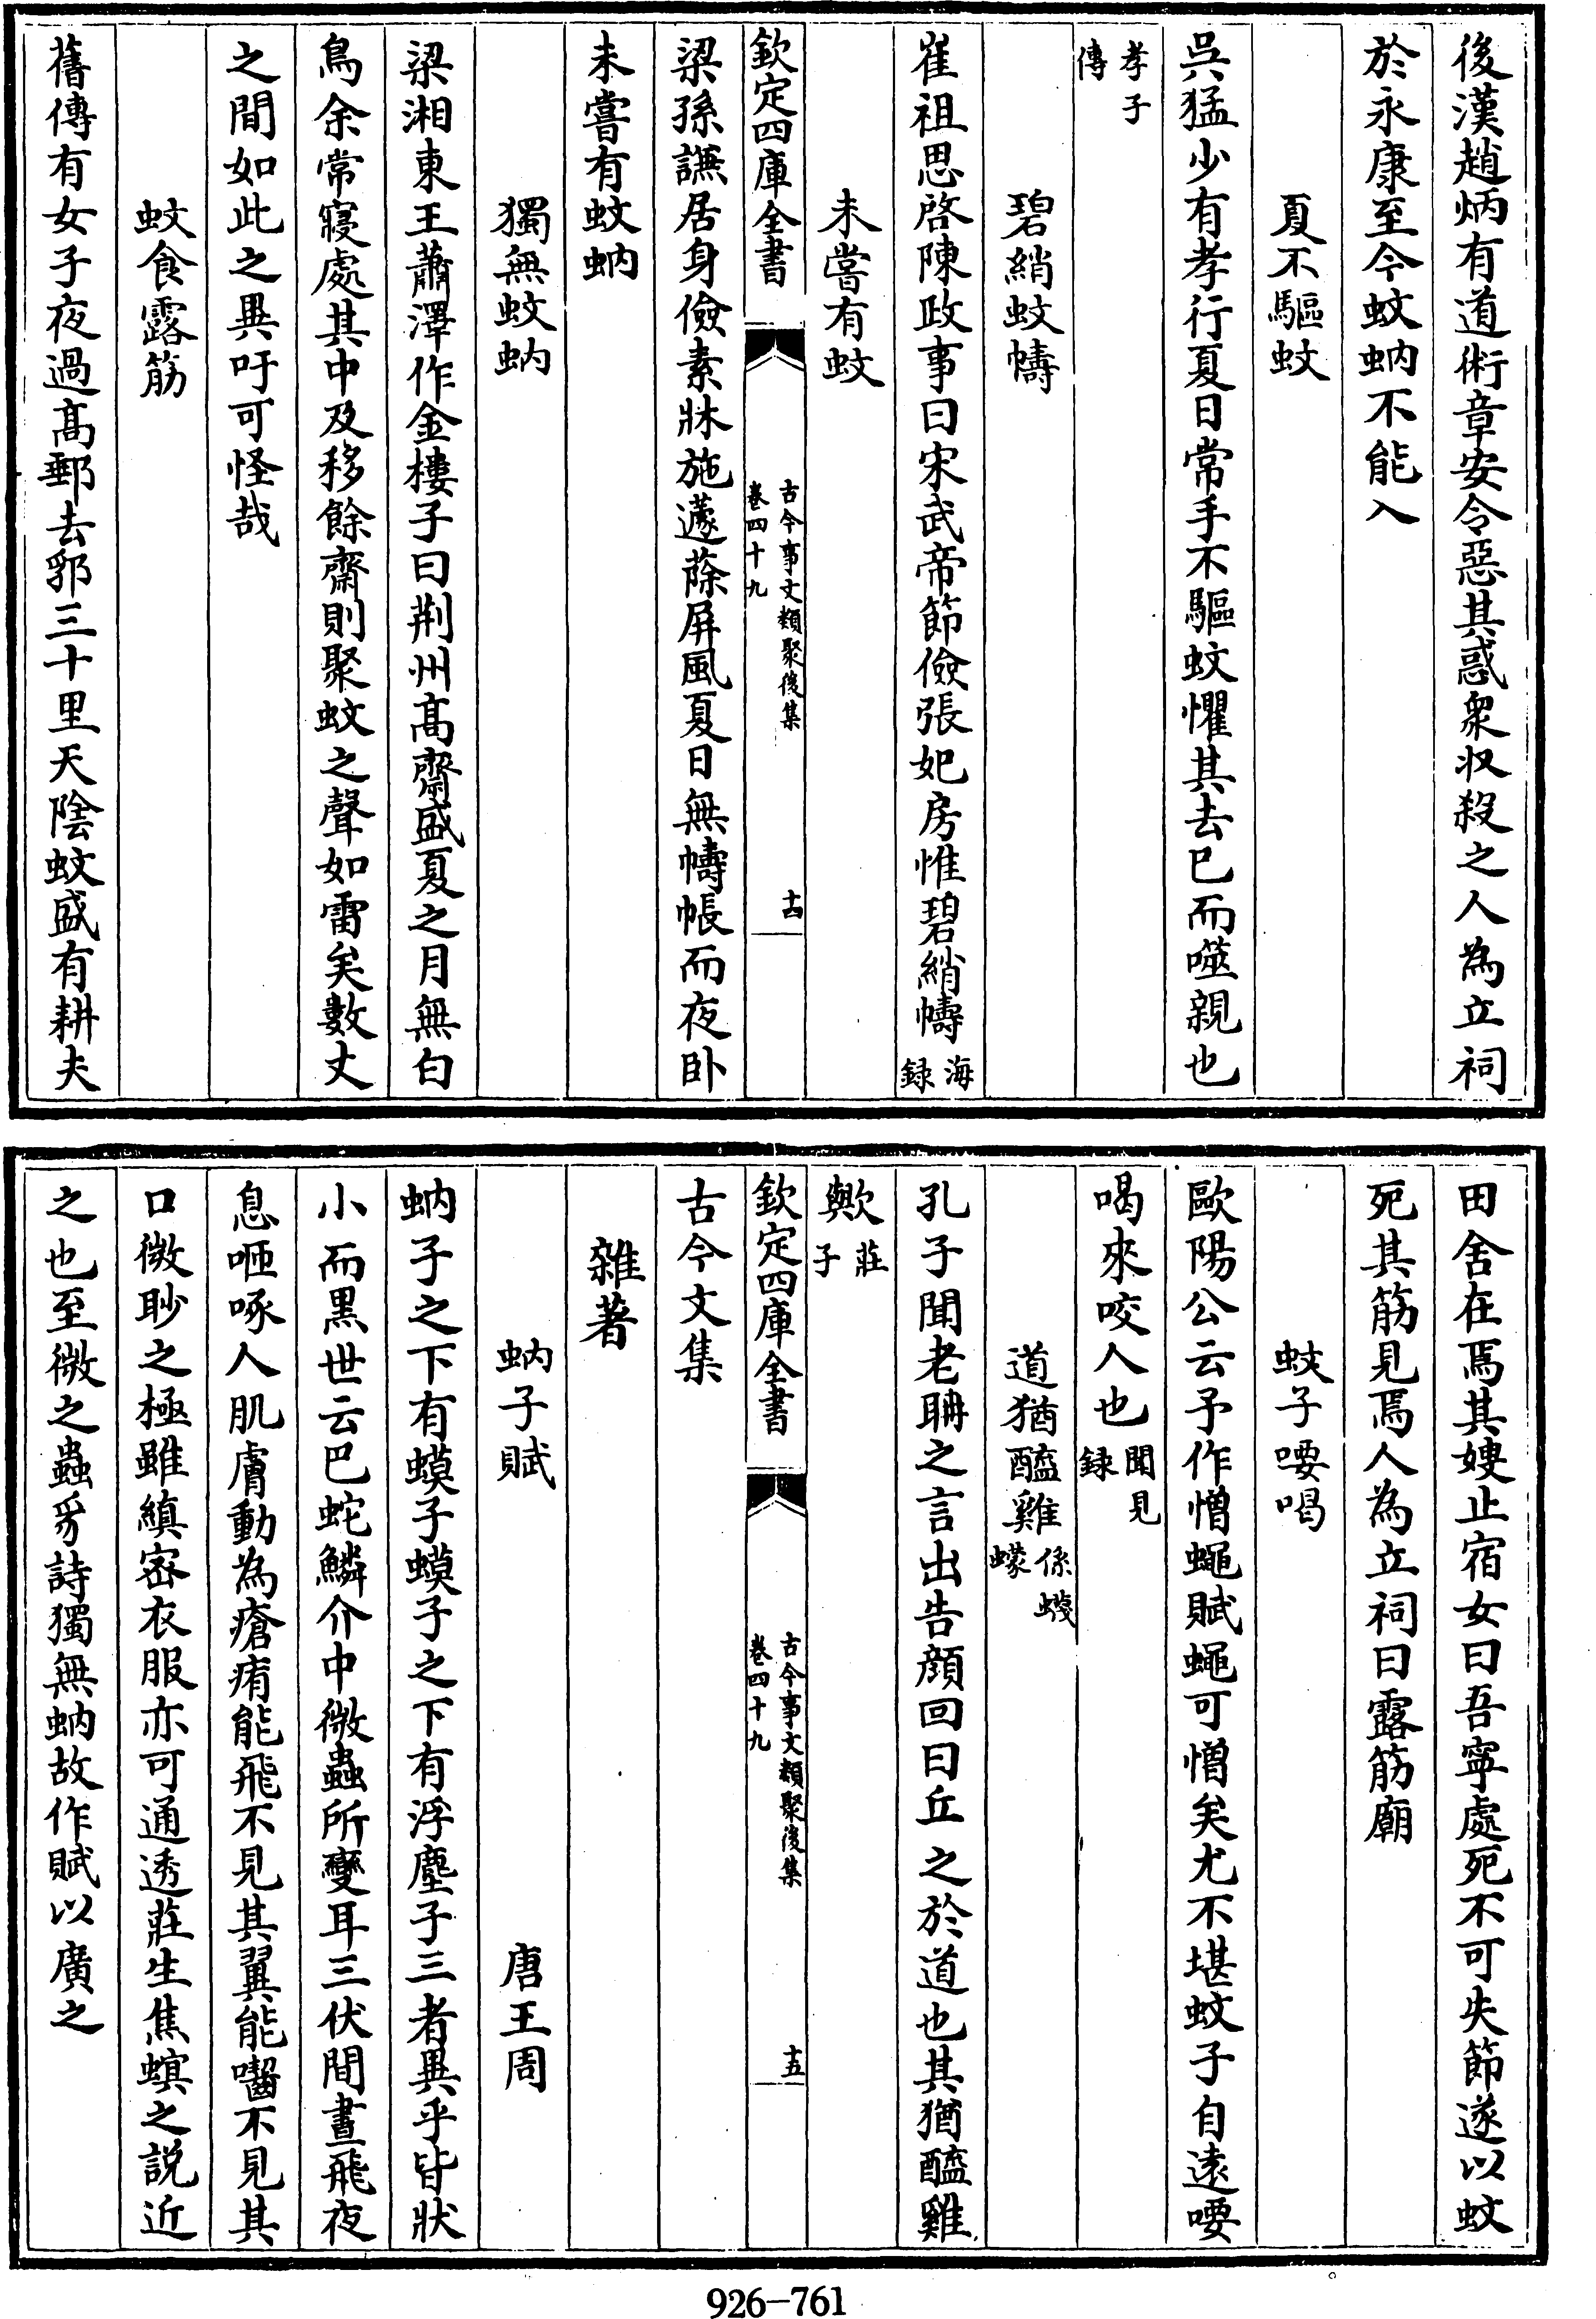 後漢趙炳有道術章安令惡其惑衆收殺之人為立祠
於永康至今蚊蚋不能入
夏不驅蚊
吳猛少有孝行夏日常手不驅蚊懼其去已而噬親也
孝子
傳
碧綃蚊幬
崔祖思啓陳政事曰宋武帝節儉張妃房惟碧綃幬海
録
未嘗有蚊
欽定四庫全書
古今事文類聚後集
卷四十九
十四
梁孫謙居身儉素牀施蘧蒢屏風夏日無幬帳而夜卧
未嘗有蚊蚋
獨無蚊蚋
梁湘東王蕭澤作金樓子曰荆州髙齋盛夏之月無白
鳥余常寢處其中及移餘齋則聚蚊之聲如雷矣數丈
之間如此之異吁可怪哉
蚊食露筋
舊傳有女子夜過髙郵去郭三十里天陰蚊盛有耕夫
田舍在焉其嫂止宿女曰吾寧處死不可失節遂以蚊
死其筋見焉人為立祠曰露筋廟
蚊子嘤喝
歐陽公云予作憎蠅賦蠅可憎矣尤不堪蚊子自遠嘤
喝來咬人也聞見
録
道猶醯雞係蠛
蠓
孔子聞老聃之言出告顔回曰丘之於道也其猶醯雞
歟莊
子
欽定四庫全書
古今事文類聚後集
卷四十九
十五
古今文集
雜著
蚋子賦 唐王周
蚋子之下有蟆子蟆子之下有浮塵子三者異乎皆狀
小而黒世云巴蛇鱗介中微蟲所變耳三伏間晝飛夜
息咂啄人肌膚動為瘡痏能飛不見其翼能囓不見其
口微眇之極雖縝宻衣服亦可通透莊生焦螟之説近
之也至微之蟲豸詩獨無蚋故作賦以廣之
926-761